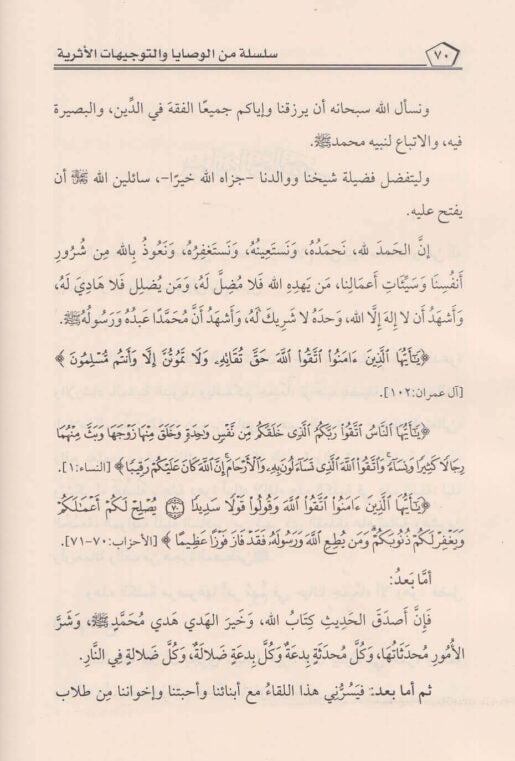 ٧٠
سلسلة من الوصايا والتوجيهات الأثرية
ونسأل الله سبحانه أن يرزقنا وإياكم جميعًا الفقهَ في الدِّين، والبصيرة
فيه، والاتباع لنبيه محمد ﷺ.
وليتفضل فضيلة شيخنا ووالدنا -جزاه الله خيرًا-، سائلين الله ﷻ أن
يفتح عليه.
إنَّ الحمدَ لله، نَحمَدُهُ، وَنَستَعِينُهُ، وَنَستَغفِرُهُ، وَنَعُوذُ بِالله مِن شُرُورِ
أَنفُسِنَا وَسَيِّئَاتِ أَعمَالِنا، مَن يَهدِهِ الله فَلا مُضِلَّ لَهُ، وَمَن يُضلِل فَلا هَادِيَ لَهُ،
وَأَشهَدُ أَن لا إِلهَ إِلَّا الله، وَحدَهُ لا شَرِيكَ لَهُ، وَأَشهَدُ أَنَّ مُحَمَّدًا عَبدُهُ وَرَسُولُهُ ﷺ.
﴿يَـٰٓأَيُّهَا ٱلَّذِينَ ءَامَنُوا۟ ٱتَّقُوا۟ ٱللَّهَ حَقَّ تُقَاتِهِۦ وَلَا تَمُوتُنَّ إِلَّا وَأَنتُم مُّسْلِمُونَ﴾
[آل عمران:١٠٢].
﴿يَـٰٓأَيُّهَا ٱلنَّاسُ ٱتَّقُوا۟ رَبَّكُمُ ٱلَّذِى خَلَقَكُم مِّن نَّفْسٍ وَٰحِدَةٍ وَخَلَقَ مِنْهَا زَوْجَهَا وَبَثَّ مِنْهُمَا
رِجَالًا كَثِيرًا وَنِسَآءً ۚ وَٱتَّقُوا۟ ٱللَّهَ ٱلَّذِى تَسَآءَلُونَ بِهِۦ وَٱلْأَرْحَامَ ۚ إِنَّ ٱللَّهَ كَانَ عَلَيْكُمْ رَقِيبًا﴾ [النساء:١].
﴿يَـٰٓأَيُّهَا ٱلَّذِينَ ءَامَنُوا۟ ٱتَّقُوا۟ ٱللَّهَ وَقُولُوا۟ قَوْلًا سَدِيدًا ٧٠ يُصْلِحْ لَكُمْ أَعْمَـٰلَكُمْ
وَيَغْفِرْ لَكُمْ ذُنُوبَكُمْ ۗ وَمَن يُطِعِ ٱللَّهَ وَرَسُولَهُۥ فَقَدْ فَازَ فَوْزًا عَظِيمًا﴾ [الأحزاب:٧٠-٧١].
أمَّا بَعدُ:
فَإِنَّ أَصدَقَ الحَدِيثِ كِتَابُ الله، وَخَيرَ الهَديِ هَديُ مُحَمَّدٍ ﷺ، وَشَرَّ
الأُمُورِ مُحدَثَاتُهَا، وَكُلَّ مُحدَثَةٍ بِدعَةٌ وَكُلَّ بِدعَةٍ ضَلالَةٌ، وَكُلَّ ضَلالَةٍ فِي النَّارِ.
ثم أما بعد: فيَسُرُّني هذا اللقاءُ مع أبنائنا وأحبتنا وإخواننا مِن طلاب